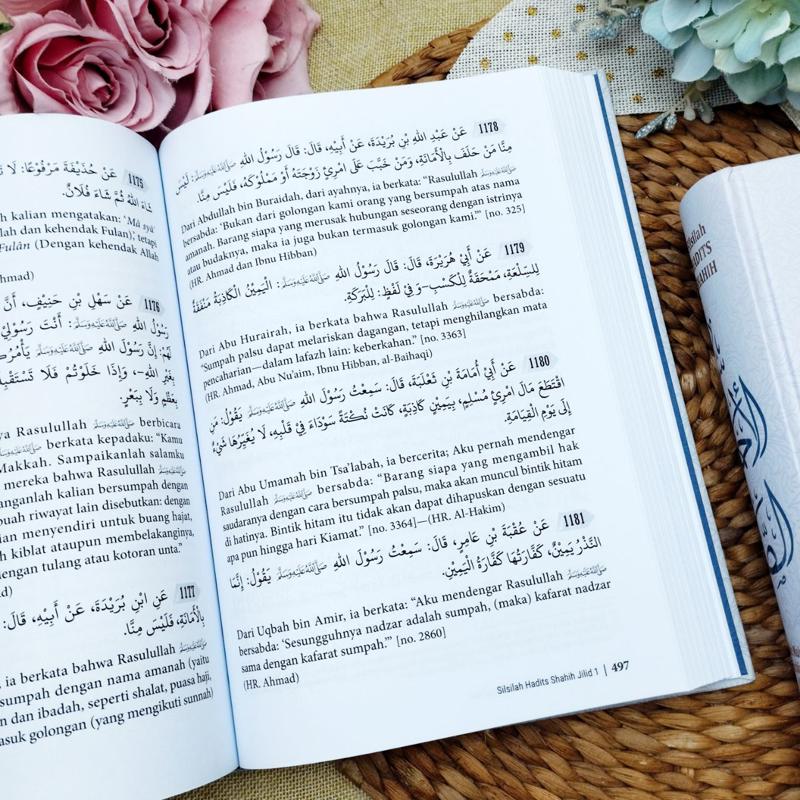 1175
عَنْ حُذَيْفَةَ مَرْفُوْعًا: لَا
شَاءَ اللهُ ثُمَّ شَاءَ فُلَانٌ.
kalian mengatakan: 'Mā syā'
lah dan kehendak Fulan); tetapi
Fulān (Dengan kehendak Allah
hmad)
1176
عَنْ سَهْلِ بْنِ حَنِيْفٍ، أَنَّ
رَسُوْلَ اللهِ ﷺ: أَنْتَ رَسُوْلِيْ
لَهُمْ: إِنَّ رَسُوْلَ اللهِ ﷺ يَأْمُرُكُ
بِغَيْرِ اللهِ-، وَإِذَا خَلَوْتُمْ فَلَا تَسْتَقْبِلُ
بِعَظْمٍ وَلَا بِبَعْرٍ.
ya Rasulullah ﷺ berbicara
ﷺ berkata kepadaku: "Kamu
Makkah. Sampaikanlah salamku
mereka bahwa Rasulullah ﷺ
anganlah kalian bersumpah dengan
buah riwayat lain disebutkan: dengan
ian menyendiri untuk buang hajat,
h kiblat ataupun membelakanginya,
engan tulang atau kotoran unta."
d)
1177
عَنِ ابْنِ بُرَيْدَةَ، عَنْ أَبِيْهِ، قَالَ:
بِالْأَمَانَةِ، فَلَيْسَ مِنَّا.
ia berkata bahwa Rasulullah ﷺ
sumpah dengan nama amanah (yaitu
n dan ibadah, seperti shalat, puasa haji,
asuk golongan (yang mengikuti sunnah)
1178
عَنْ عَبْدِ اللهِ بْنِ بُرَيْدَةَ، عَنْ أَبِيْهِ، قَالَ: قَالَ رَسُوْلُ اللهِ ﷺ: لَيْسَ
مِنَّا مَنْ حَلَفَ بِالْأَمَانَةِ، وَمَنْ خَبَّبَ عَلَى امْرِئٍ زَوْجَتَهُ أَوْ مَمْلُوْكَهُ، فَلَيْسَ مِنَّا.
Dari Abdullah bin Buraidah, dari ayahnya, ia berkata: "Rasulullah ﷺ
bersabda: 'Bukan dari golongan kami orang yang bersumpah atas nama
amanah. Barang siapa yang merusak hubungan seseorang dengan istrinya
atau budaknya, maka ia juga bukan termasuk golongan kami.'" [no. 325]
(HR. Ahmad dan Ibnu Hibban)
1179
عَنْ أَبِيْ هُرَيْرَةَ، قَالَ: قَالَ رَسُوْلُ اللهِ ﷺ: الْيَمِيْنُ الْكَاذِبَةُ مَنْفَقَةٌ
لِلسِّلْعَةِ، مَمْحَقَةٌ لِلْكَسْبِ-وَ فِيْ لَفْظٍ: لِلْبَرَكَةِ.
Dari Abu Hurairah, ia berkata bahwa Rasulullah ﷺ bersabda:
"Sumpah palsu dapat melariskan dagangan, tetapi menghilangkan mata
pencaharian—dalam lafazh lain: keberkahan." [no. 3363]
(HR. Ahmad, Abu Nu'aim, Ibnu Hibban, al-Baihaqi)
1180
عَنْ أَبِيْ أُمَامَةَ بْنِ ثَعْلَبَةَ، قَالَ: سَمِعْتُ رَسُوْلَ اللهِ ﷺ يَقُوْلُ: مَنِ
اقْتَطَعَ مَالَ امْرِئٍ مُسْلِمٍ، بِيَمِيْنٍ كَاذِبَةٍ، كَانَتْ نُكْتَةٌ سَوْدَاءَ فِيْ قَلْبِهِ، لَا يُغَيِّرُهَا شَيْءٌ
إِلَى يَوْمِ الْقِيَامَةِ.
Dari Abu Umamah bin Tsa'labah, ia bercerita; Aku pernah mendengar
Rasulullah ﷺ bersabda: "Barang siapa yang mengambil hak
saudaranya dengan cara bersumpah palsu, maka akan muncul bintik hitam
di hatinya. Bintik hitam itu tidak akan dapat dihapuskan dengan sesuatu
apa pun hingga hari Kiamat." [no. 3364]—(HR. Al-Hakim)
1181
عَنْ عُقْبَةَ بْنِ عَامِرٍ، قَالَ: سَمِعْتُ رَسُوْلَ اللهِ ﷺ يَقُوْلُ: إِنَّمَا
النَّذْرُ يَمِيْنٌ، كَفَّارَتُهَا كَفَّارَةُ الْيَمِيْنِ.
Dari Uqbah bin Amir, ia berkata: "Aku mendengar Rasulullah ﷺ
bersabda: 'Sesungguhnya nadzar adalah sumpah, (maka) kafarat nadzar
sama dengan kafarat sumpah.'" [no. 2860]
(HR. Ahmad)
Silsilah Hadits Shahih Jilid 1 | 497
silah
ADITS
AHIH